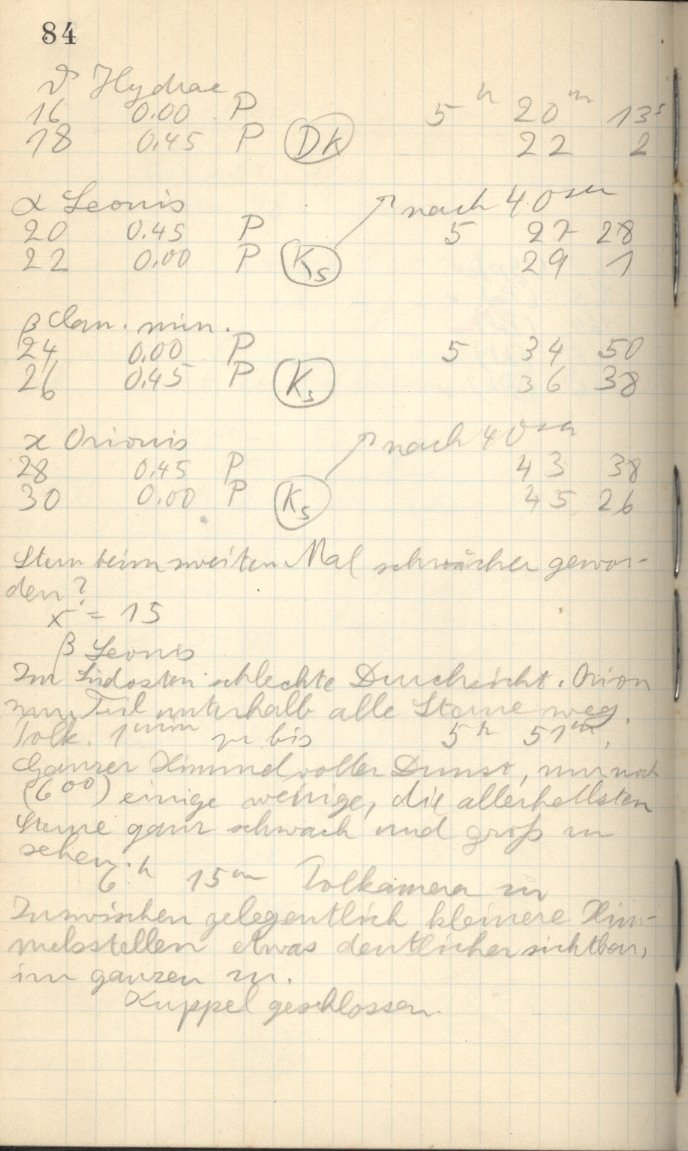 84
ϑ Hydrae
16 0.00 P 5ʰ 20ᵐ 13ˢ
18 0.45 P DK 22 2
α Leonis nach 40ᵐ
20 0.45 P 5 27 28
22 0.00 P Ks 29 1
β Can. min.
24 0.00 P 5 34 50
26 0.45 P Ks 36 38
ϰ Orionis nach 40
28 0.45 P 43 38
30 0.00 P Ks 45 26
Stern beim zweiten Mal schwächer gewor-
den?
= 15
β Leonis
Im Südosten schlechte Durchsicht. Orion
zum Teil unterhalb alle Sterne weg.
Polk. 1ᵐⁱⁿ zu bis 5ʰ 51ᵐ,
Ganzer Himmel voller Dunst, nur noch
(6⁰⁰) einige wenige, die allerhellsten
Sterne ganz schwach und groß zu
sehen.
6ʰ 15ᵐ Polkamera zu
Inzwischen gelegentlich kleinere Him-
melsstellen etwas deutlicher sichtbar,
im ganzen zu.
Kuppel geschlossen